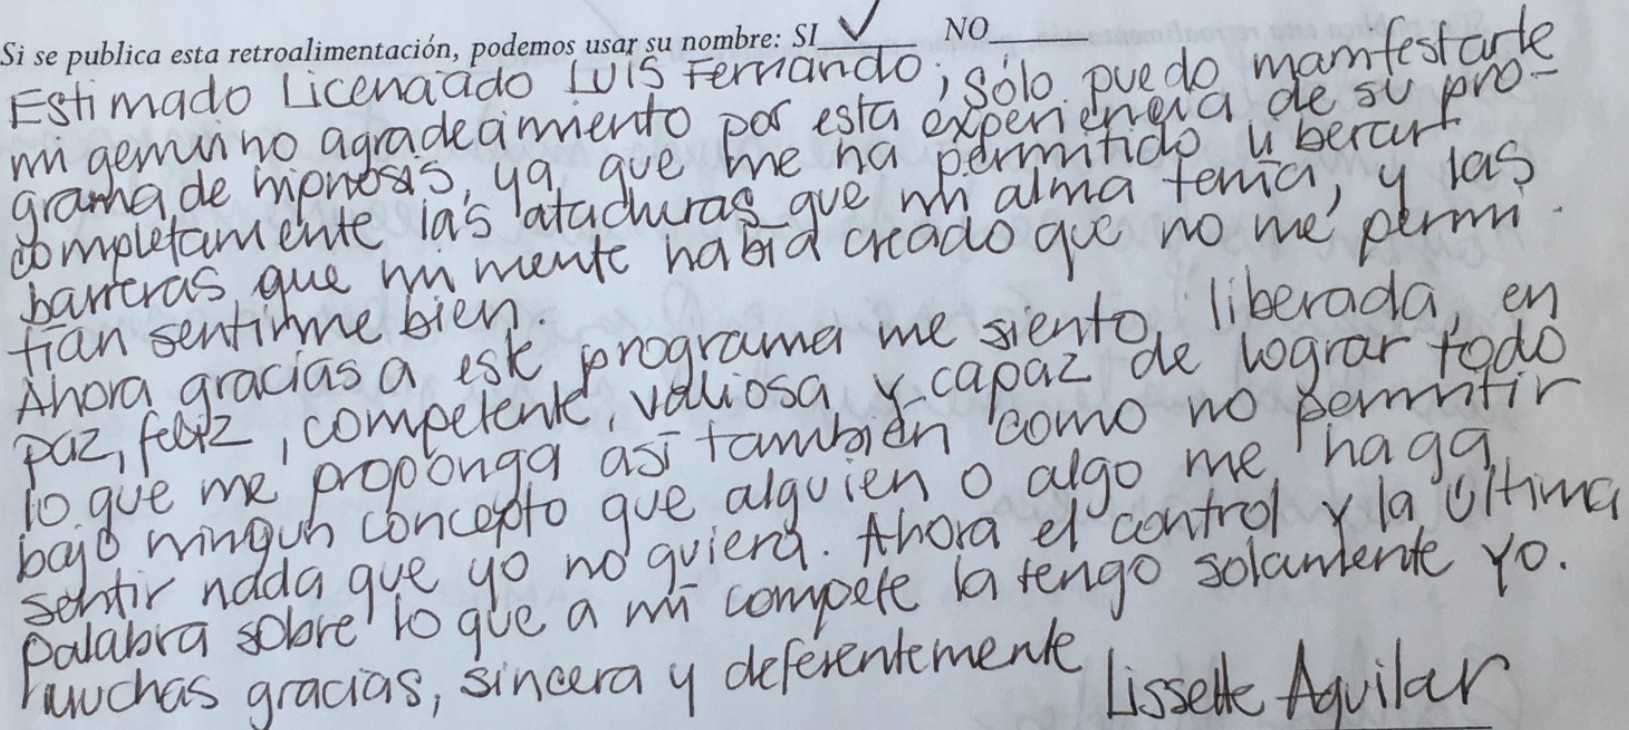 Si se publica esta retroalimentación, podemos usar su nombre: SI ✓ NO
Estimado Licenciado Luis Fernando, sólo puedo manifestarte
mi genuino agradecimiento por esta experiencia de su pro-
grama de hipnosis, ya que me ha permitido liberar
completamente las ataduras que mi alma tenía, y las
barreras que mi mente había creado que no me permi
tían sentirme bien.
Ahora gracias a este programa me siento liberada, en
paz, feliz, competente, valiosa y capaz de lograr todo
lo que me proponga así también como no permitir
bajo ningun concepto que alguien o algo me haga
sentir nada que yo no quiera. Ahora el control y la última
palabra sobre lo que a mí compete la tengo solamente yo.
muchas gracias, sincera y deferentemente
Lissette Aguilar